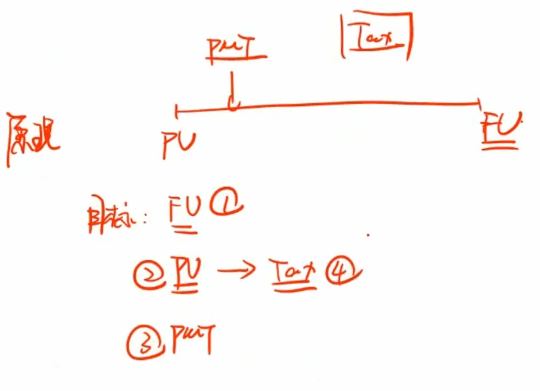 PMT Tax
原理
PV FV
目标: FV ①
② PV → Tax ④
③ PMT